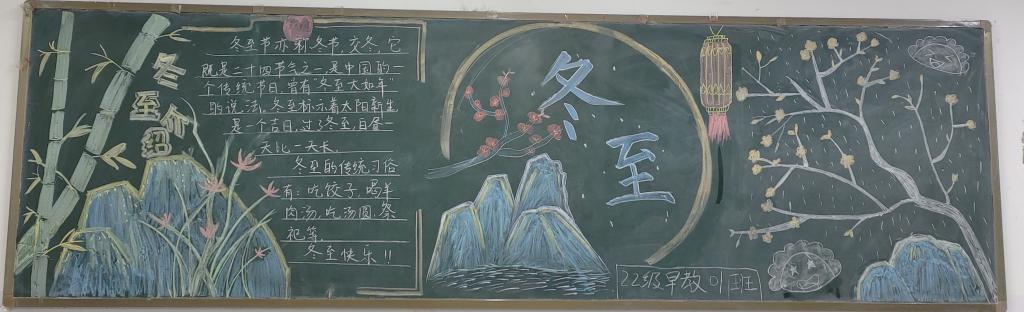 冬至介绍
冬至节亦称冬节,交冬,它
既是二十四节气之一是中国的一
个传统节日,曾有"冬至大如年"
的说法,冬至标示着太阳新生
是一个吉日,过了冬至,白昼
天比一天长.
冬至的传统习俗
有:吃饺子,喝羊
肉汤,吃汤圆,祭
祀等.
冬至快乐!!
冬至
22级早教01班